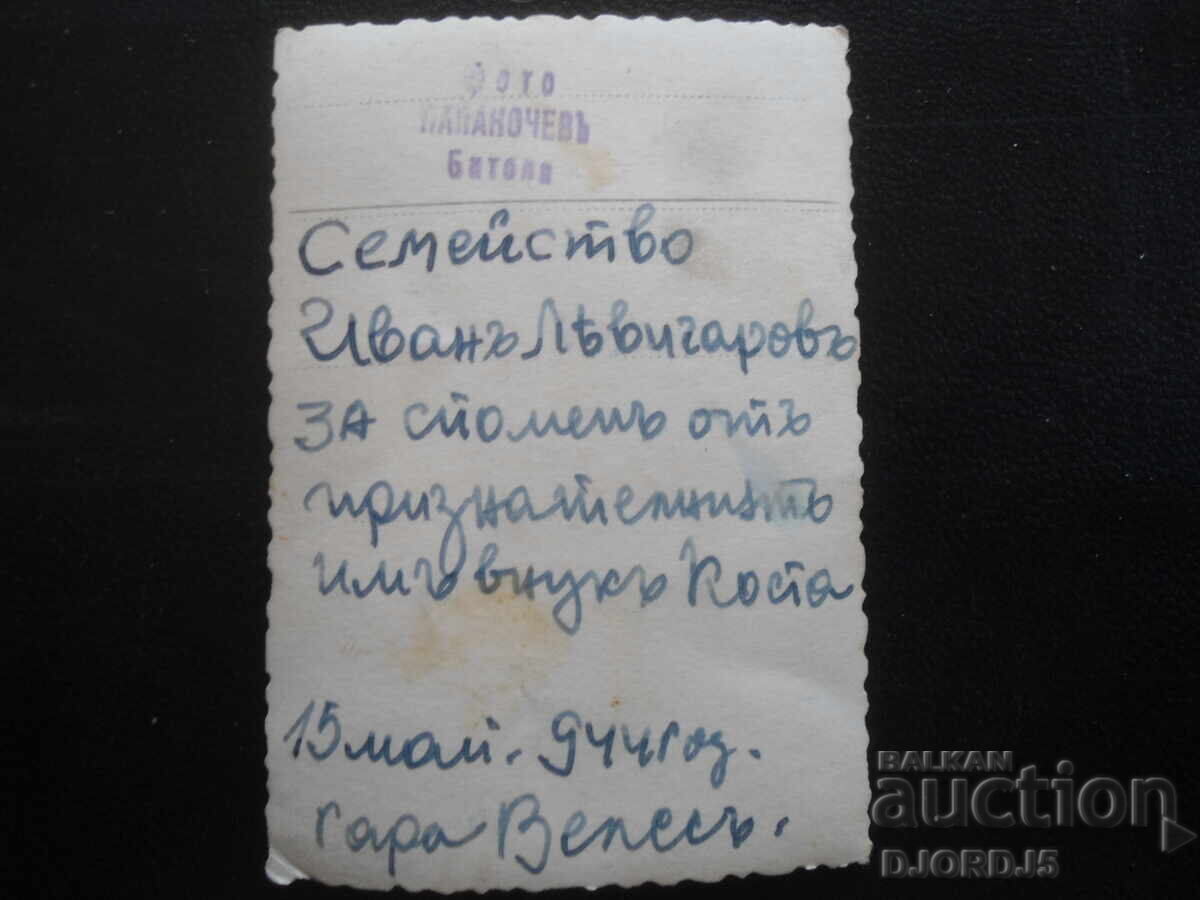 Фото
ПАПАНОЧЕВЪ
Битоля
Семейство
Иванъ Лѣвигаровъ
ЗА споменъ отъ
признателниятъ
имъ внукъ Коста
15 май. 944 год.
гара Велесъ.
BALKAN
auction
DJORDJ5